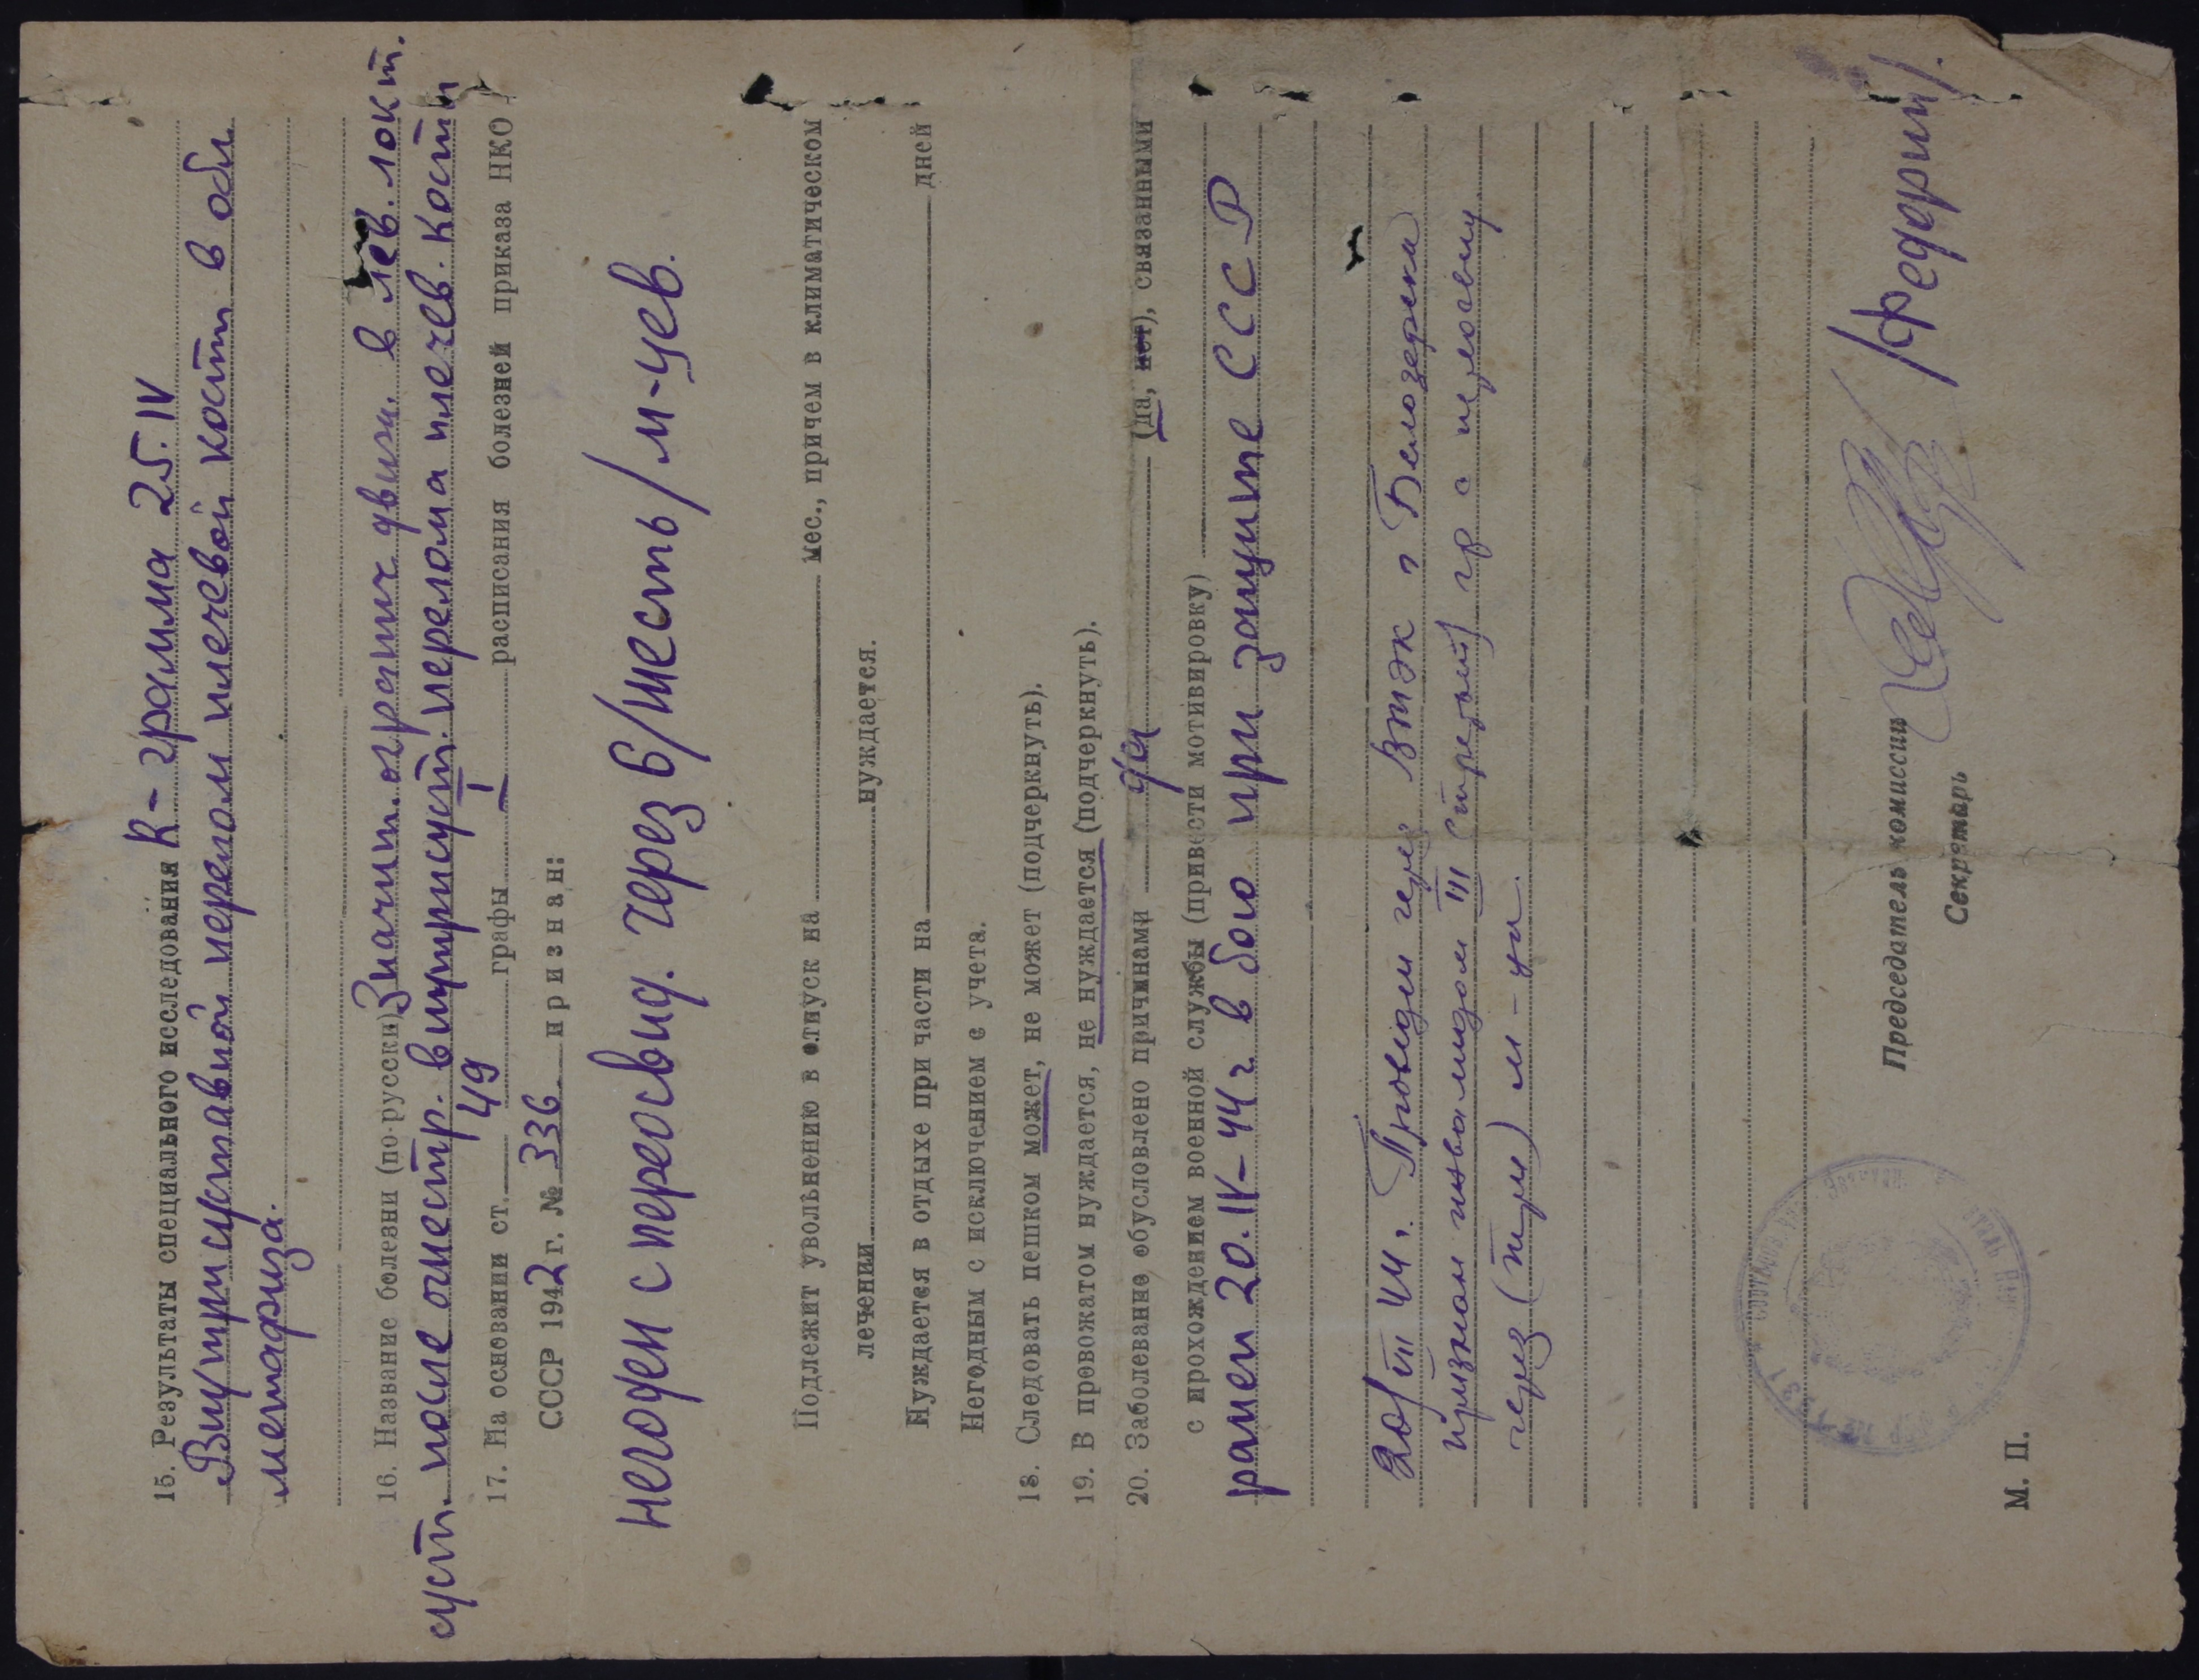 15. Результаты специального исследования R-грамма 25.IV
Внутрисуставной перелом плечевой кости в обл.
метафиза.
16. Название болезни (по-русски) Значит. огранич движ. в лев. локт.
суст. после огнестр. внутрисуст. перелома плечев. кости
17. На основании ст. 49 графы I расписания болезней приказа НКО
СССР 1942 г. № 336 признан:
Негоден с переосвид. через 6/шесть/м-цев.
Подлежит увольнению в отпуск на мес., причем в климатическом
лечении нуждается.
Нуждается в отдыхе при части на дней
Негодным с исключением с учета.
18. Следовать пешком может, не может (подчеркнуть).
19. В провожатом нуждается, не нуждается (подчеркнуть).
20. Заболевание обусловлено причинами да (да, нет), связанными
с прохождением военной службы (привести мотивировку)
ранен 20.IV-44 г. в бою при защите СССР
20/VIII 44 г. Проведен через ВТЭК с Белозерка
признан инвалидом III (третьей) гр с
через (три) м-ца.
Председатель комиссии
Секретарь /Федерий/.
М. П.